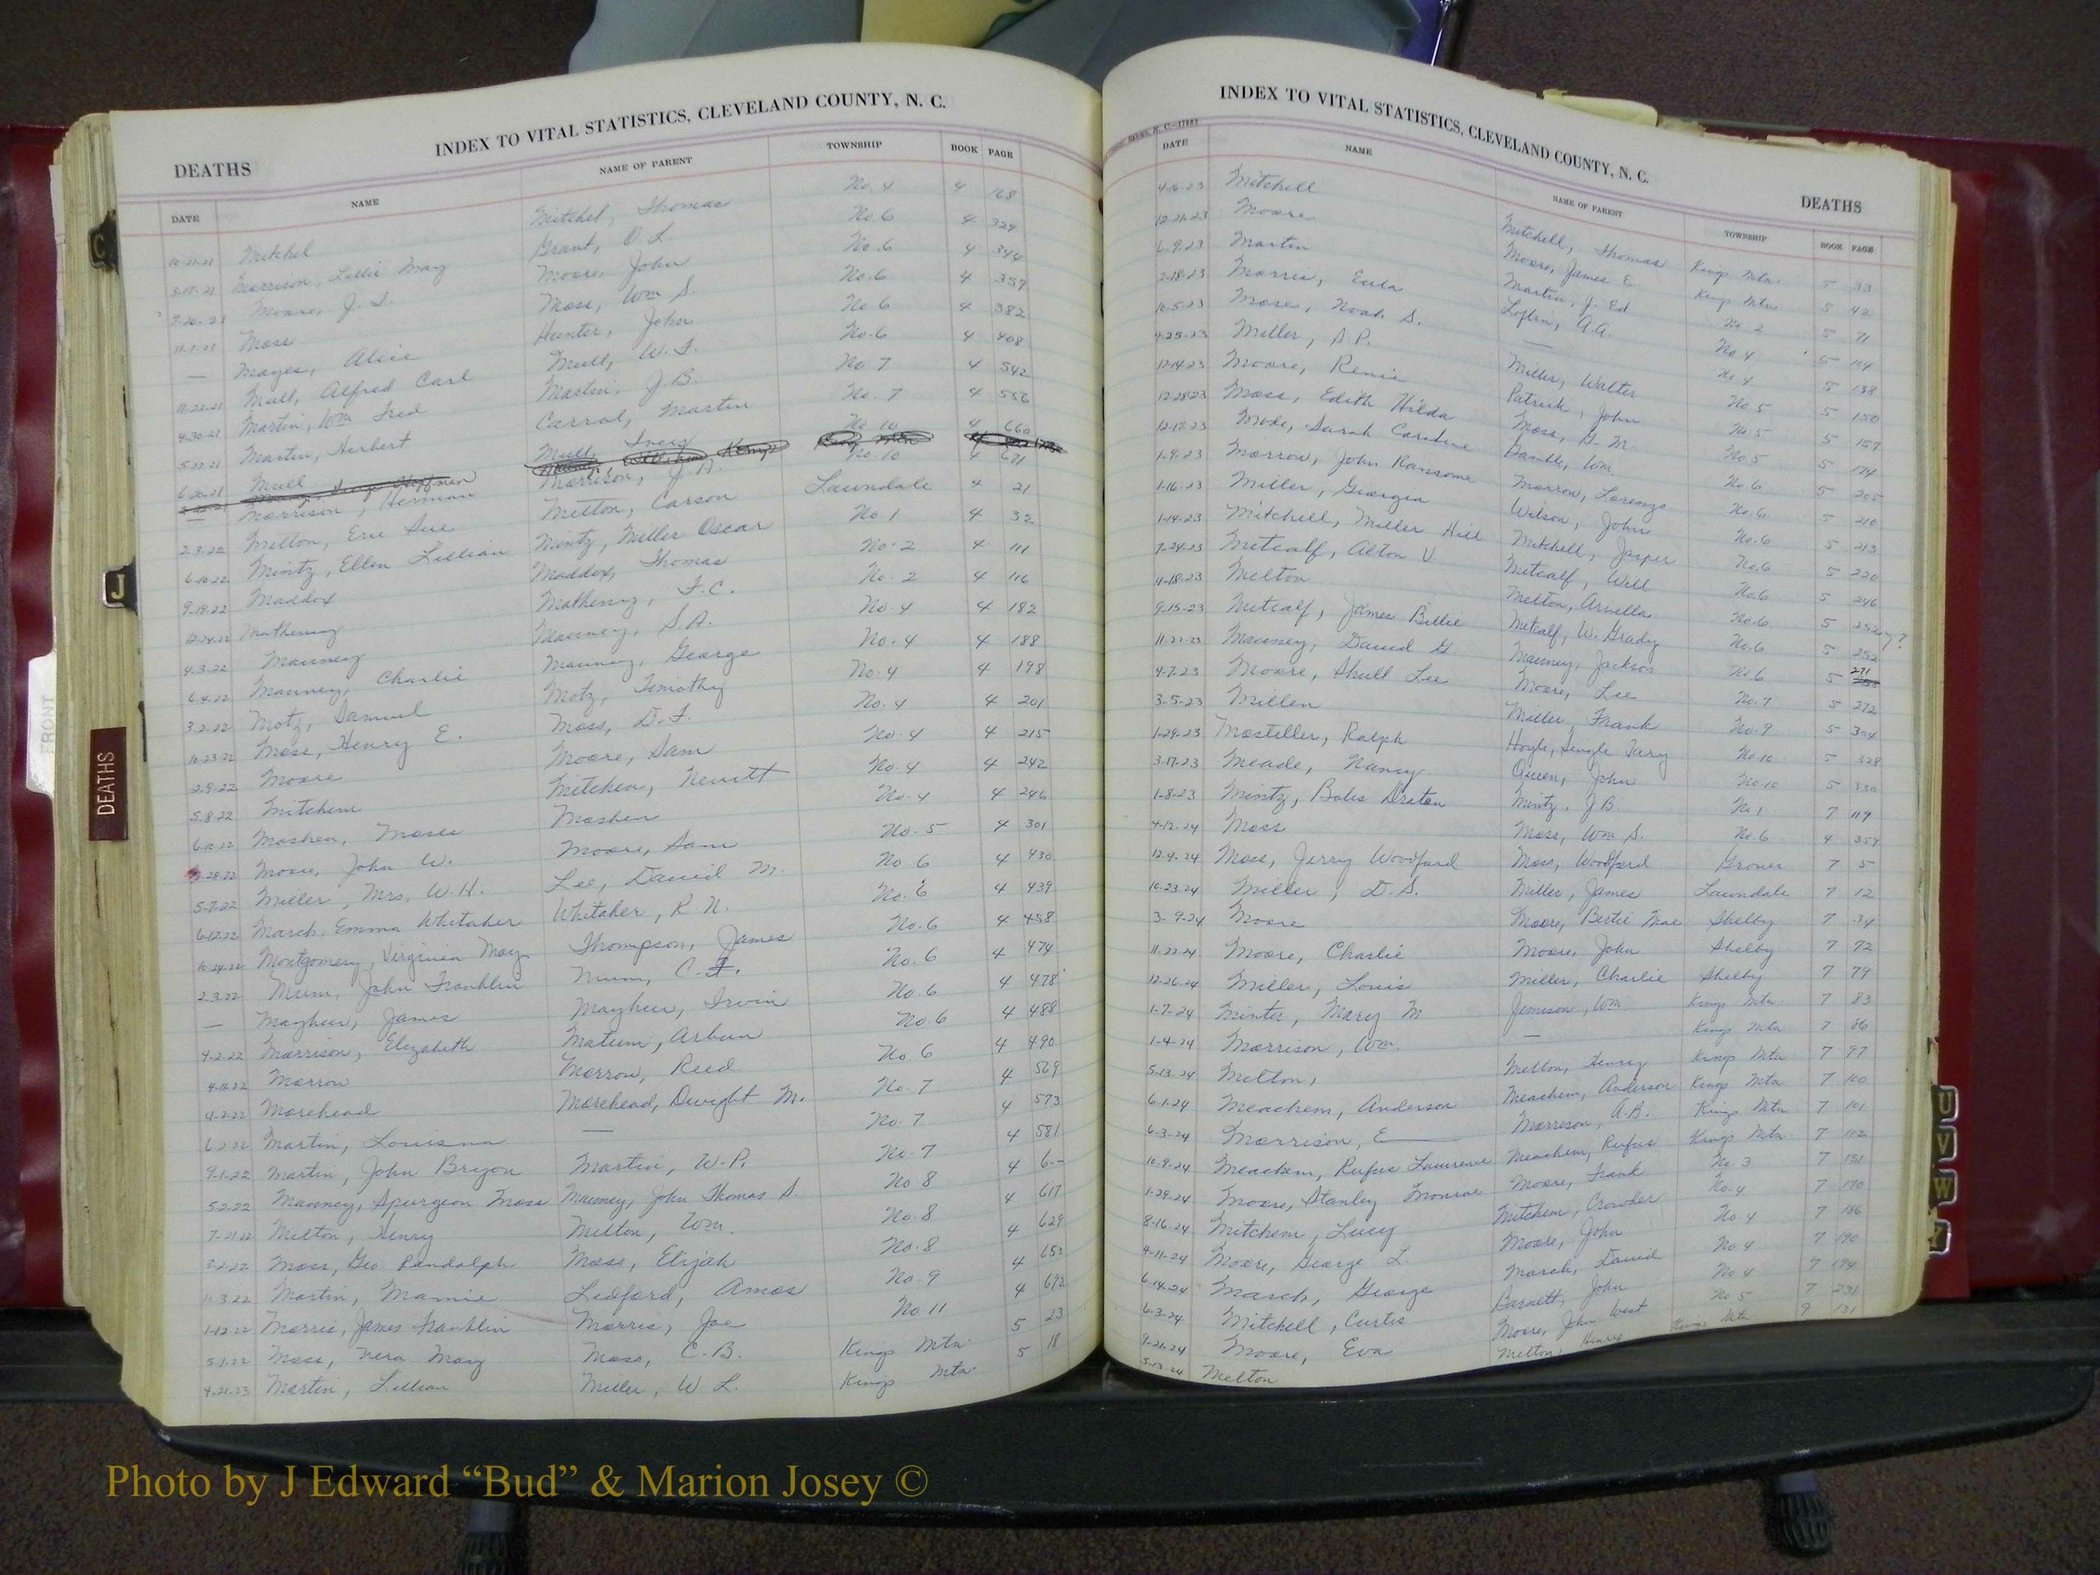 INDEX TO VITAL STATISTICS, CLEVELAND COUNTY, N. C.
DEATHS
DATE NAME NAME OF PARENT TOWNSHIP BOOK PAGE
10-21-21 Mitchel Mitchel, Thomas No. 4 4 168
3-17-21 Morrison, Lillie May Grant, O.L. No. 6 4 329
Moore, J. Moore, John No. 6 4 344
Moss Moss, Wm S. No. 6 4 359
— Mayes, Alice Hunter, John No. 6 4 382
11-22-21 Mull, Alfred Carl Mull, W. No. 6 4 408
8-30-21 Martin, Wm Fred Martin, J.B. No. 7 4 542
5-22-21 Martin, Herbert Carrol, Martin No. 7 4 556
6-20-21 Mull Mull, No. 10 4 660
— Morrison, Herman Morrison, J.A. No. 10 4 671
2-3-22 Melton, Erie Sue Melton, Carson Lawndale 4 21
6-10-22 Mintz, Ellen Lillian Mintz, Miller Oscar No. 1 4 32
9-19-22 Maddox Maddox, Thomas No. 2 4 111
12-24-22 Matheny Matheny, F.C. No. 2 4 116
4-3-22 Mauney Mauney, S.A. No. 4 4 182
6-4-22 Mauney, Charlie Mauney, George No. 4 4 188
3-2-22 Motz, Samuel Motz, Timothy No. 4 4 198
10-23-22 Moss, Henry E. Moss, D.F. No. 4 4 201
2-9-22 Moore Moore, Sam No. 4 4 215
5-8-22 Mitchem Mitchem, No. 4 4 242
Moshen, Moses Moshen No. 4 4 246
-28-22 Moore, John W. Moore, Sam No. 5 4 301
5-7-22 Miller, Mrs. W.H. Lee, David M. No 6 4 430
6-12-22 March, Emma Whitaker Whitaker, R.N. No. 6 4 439
10-24-22 Montgomery, Virginia May Thompson, James No. 6 4 458
2-3-22 Mum, John Franklin Mum, C. No. 6 4 474
— Mayhew, James Mayhew, Irvin No. 6 4 478
4-2-22 Morrison, Elizabeth Matum, No. 6 4 488
4-11-22 Morrow Morrow, Reed No 6 4 490
4-2-22 Morehead Morehead, Dwight M. No. 7 4 569
6-2-22 Martin, Louisma — No. 7 4 573
9-1-22 Martin, John Bryon Martin, W.P. No. 7 4 581
5-2-22 Mauney, Spurgeon Moss Mauney, John Thomas S. No 8 4 6-
7-21-22 Melton, Henry Melton, Wm. No. 8 4 617
3-2-22 Moss, Geo. Randolph Moss, Elijah No. 8 4 629
11-3-22 Martin, Mamie Ledford, Amos No. 9 4 653
1-12-22 Morris, James Franklin Morris, Joe No 11 4 692
5-1-22 Moss, Vera May Moss, C.B. Kings Mtn 5 23
4-21-23 Martin, Lillian Miller, W.L. Kings Mtn 5 18
INDEX TO VITAL STATISTICS, CLEVELAND COUNTY, N. C.
DEATHS
DATE NAME NAME OF PARENT TOWNSHIP BOOK PAGE
4-16-23 Mitchell Mitchell, Thomas Kings Mtn. 5 33
12-21-23 Moore Moore, James E. Kings Mtn 5 42
6-9-23 Martin Martin, J. Ed No. 2 5 71
2-18-23 Morris, Euda Loftin, A.A. No 4 5 104
10-5-23 Moses, Noah S. — No 4 5 138
4-25-23 Miller, S.P. Miller, Walter No. 5 5 150
12-14-23 Moore, Renie Patrick, John No 5 5 157
12-28-23 Moss, Edith Hilda Moss, G.M. No. 5 5 174
12-17-23 Mode, Sarah Caroline Gamble, Wm. No. 6 5 205
1-9-23 Morrow, John Ransome Morrow, Lorenzo No. 6 5 210
1-16-23 Miller, Georgia Wilson, John No. 6 5 213
1-14-23 Mitchell, Miller Hill Mitchell, Jasper No. 6 5 220
7-24-23 Metcalf, Alton V Metcalf, Will No. 6 5 246
4-18-23 Melton Melton, Arvella No. 6 5
9-15-23 Metcalf, James Billie Metcalf, W. Grady No. 6 5 252
11-22-23 Mauney, David G. Mauney, Jackson No. 6 5 271
4-7-23 Moore, Shull Lee Moore, Lee No. 7 5 272
3-5-23 Millen Miller, Frank No. 9 5 304
1-29-23 Mosteller, Ralph Hoyle, No 10 5 328
3-17-23 Meade, Nancy Queen, John No 10 5 330
1-8-23 Mintz, Boles Draton Mintz, J.B. No 1 7 119
4-12-24 Moss Moss, Wm S. No. 6 4 359
12-4-24 Moss, Jerry Woodford Moss, Woodford Grover 7 5
10-23-24 Miller, D.S. Miller, James Lawndale 7 12
3-9-24 Moore Moore, Bertie Mae Shelby 7 34
11-22-24 Moore, Charlie Moore, John Shelby 7 72
12-26-24 Miller, Louis Miller, Charlie Shelby 7 79
1-7-24 Minter, Mary M Jemison, Wm Kings Mtn 7 83
1-4-24 Morrison, Wm. — Kings Mtn. 7 86
5-13-24 Melton, Melton, Henry Kings Mtn 7 97
6-1-24 Meachem, Anderson Meachem, Anderson Kings Mtn 7 100
6-3-24 Morrison, E— Morrison, A.B. Kings Mtn 7 101
10-9-24 Meachem, Rufus Lawrence Meachem, Rufus Kings Mtn 7 112
1-29-24 Moore, Stanley Monroe Moore, Frank No. 3 7 151
8-16-24 Mitchem, Lucy Mitchem, Crowder No. 4 7 170
4-11-24 Moore, George L. Moore, John No. 4 7 186
6-14-24 March, George March, David No. 4 7 190
6-3-24 Mitchell, Curtis Barnett, John No 4 7 194
9-21-24 Moore, Eva Moore, John West No 5 7 231
5-13-24 Melton Melton, Henry Kings Mtn 9 131
C
J
FRONT
DEATHS
U
V
W
Y
Photo by J Edward “Bud” & Marion Josey ©